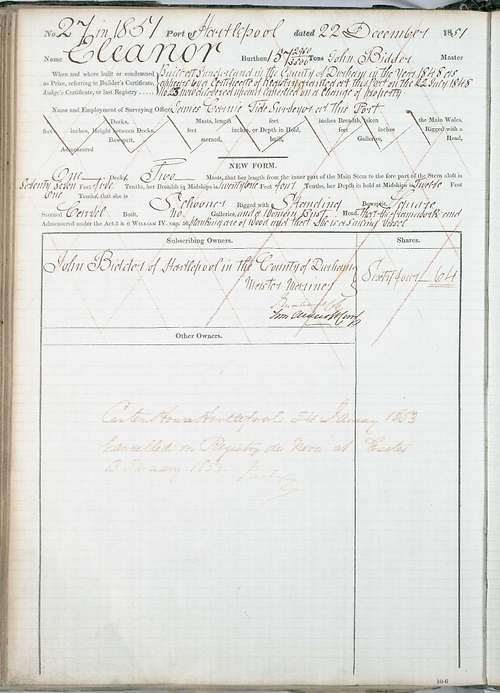 No. 27 in 1851 Port of Hartlepool dated 22 December 1851
Name Eleanor Burthen 157 Tons John Bidder Master
When and where built or condemned as Prize, referring to Builder's Certificate, Judge's Certificate, or last Registry
Built at Sunderland in the County of Durham in the Year 1848 as
appears by a Certificate of Registry granted at this Port on the July 1848
No surrendered upon a change of property
Name and Employment of Surveying Officer James Tide Surveyor at this Port
Decks, Masts, length feet inches Breadth, taken feet inches the Main Wales,
feet inches, Height between Decks, feet inches, or Depth in Hold, feet inches Rigged with a
Bowsprit, sterned, built, Galleries, Head,
Admeasured
NEW FORM.
One Decks, Two Masts, that her length from the inner part of the Main Stem to the fore part of the Stern aloft is
Seventy seven Feet five Tenths, her Breadth in Midships is twenty one Feet four Tenths, her Depth in hold at Midships is Twelve Feet
one Tenths, that she is Schooner Rigged with a Standing Bowsprit, Square
Sterned Carvel Built, No Galleries, and a Woman Bust Head that the framework and
Admeasured under the Act 5 & 6 WILLIAM IV. cap. 56 planking are of Wood and that she is a Sailing Vessel
Subscribing Owners. Shares.
John Bidder of Hartlepool in the County of Durham
Master Mariner Sixty four 64
Other Owners.
Custom House Hartlepool 14 January 1853
Cancelled on Registry de Novo at Exeter
13 January 1853
10-6